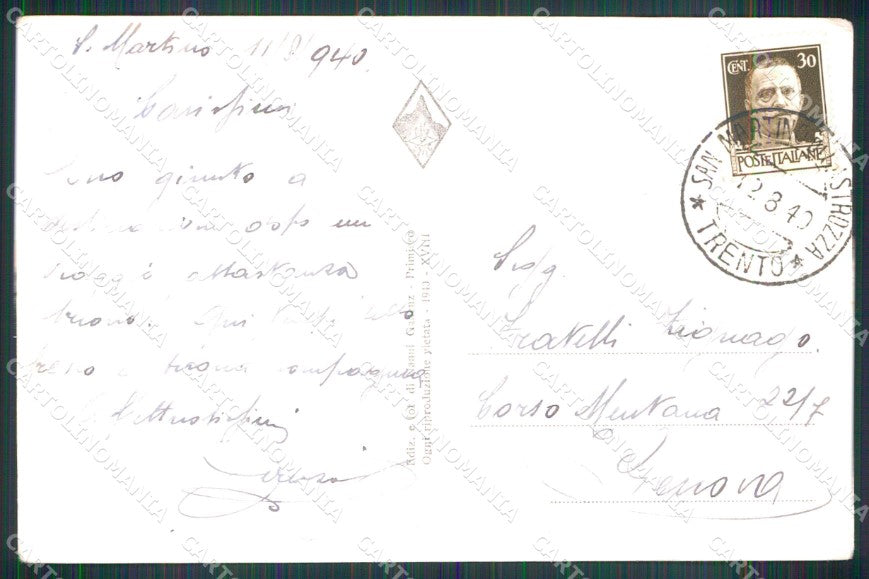 S. Martino 11/8/940.
Carissimi
Sono giunto a
destinazione dopo un
viaggio abbastanza
buono. Qui tempo bello
fresco e buona compagnia
Affettuosissimi
CENT. 30
POSTE ITALIANE
SAN MARTINO CASTROZZA
12.8.40
TRENTO
Ediz. e fot. di
Ogni riproduzione vietata - 1940 - XVIII
Sigg.
Fratelli
Corso Mentana 22/7
Genova
CARTOLINOMANIA